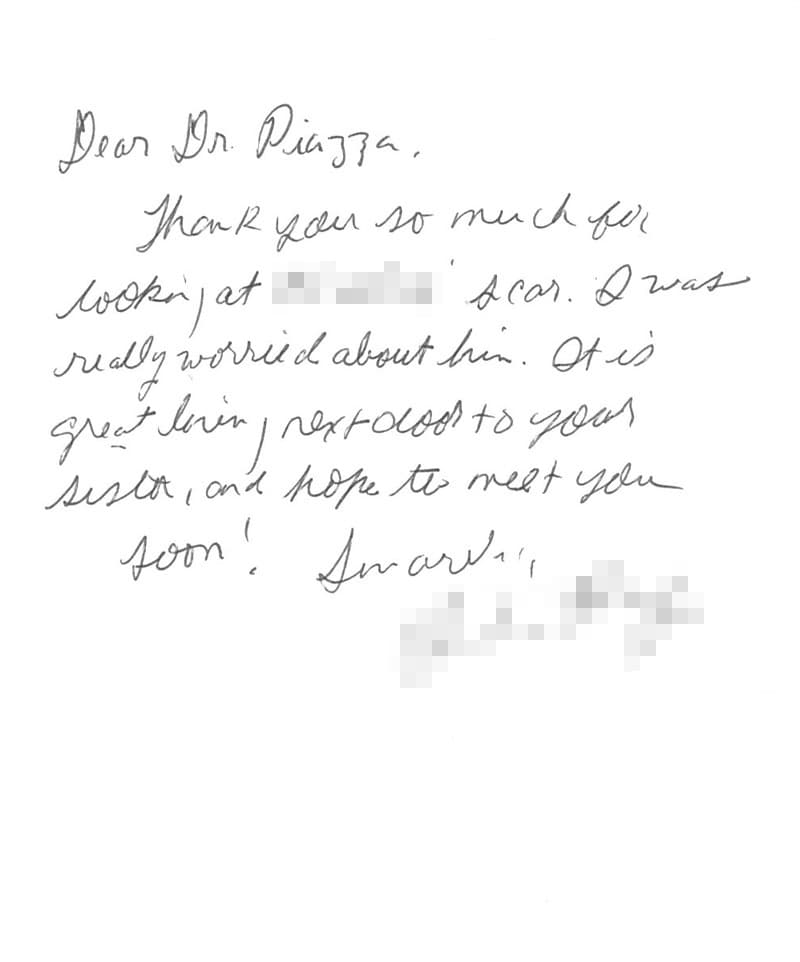 Dear Dr. Piazza,
Thank you so much for
looking at ' scar. I was
really worried about him. It is
great living next door to your
sister, and hope to meet you
soon! Sincerely,